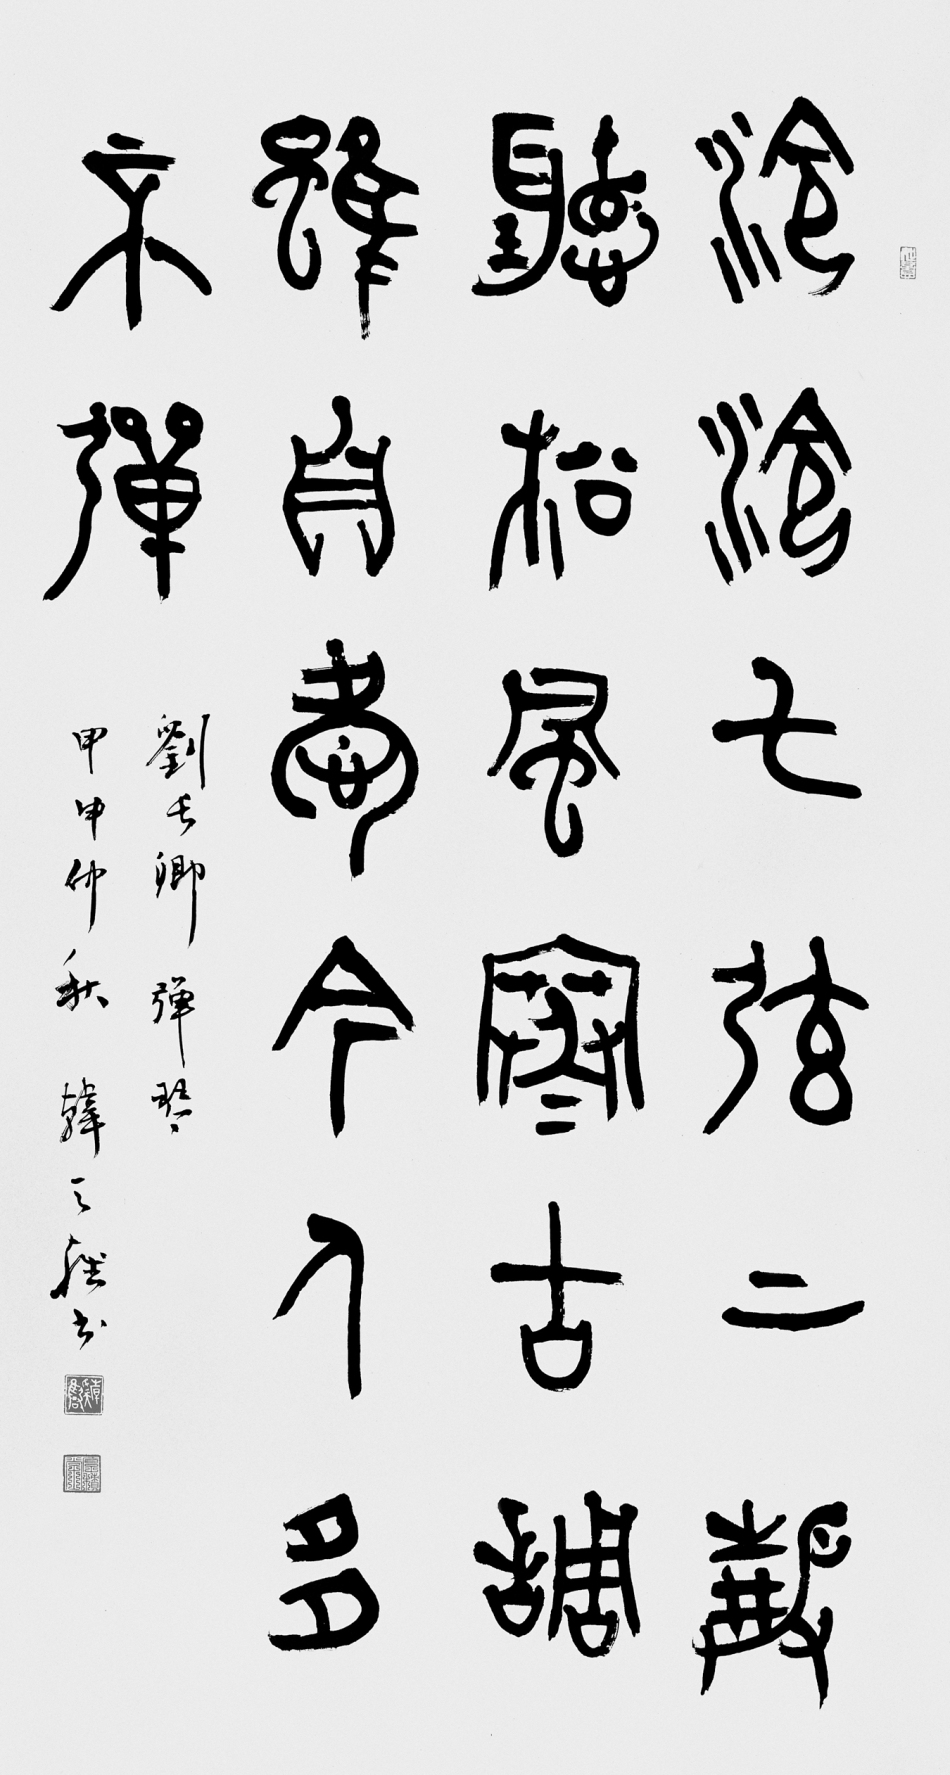 泠泠七弦上靜
聽松風寒古調
雖自愛今人多
不彈
劉長卿 彈琴
甲申仲秋 韓天雍书